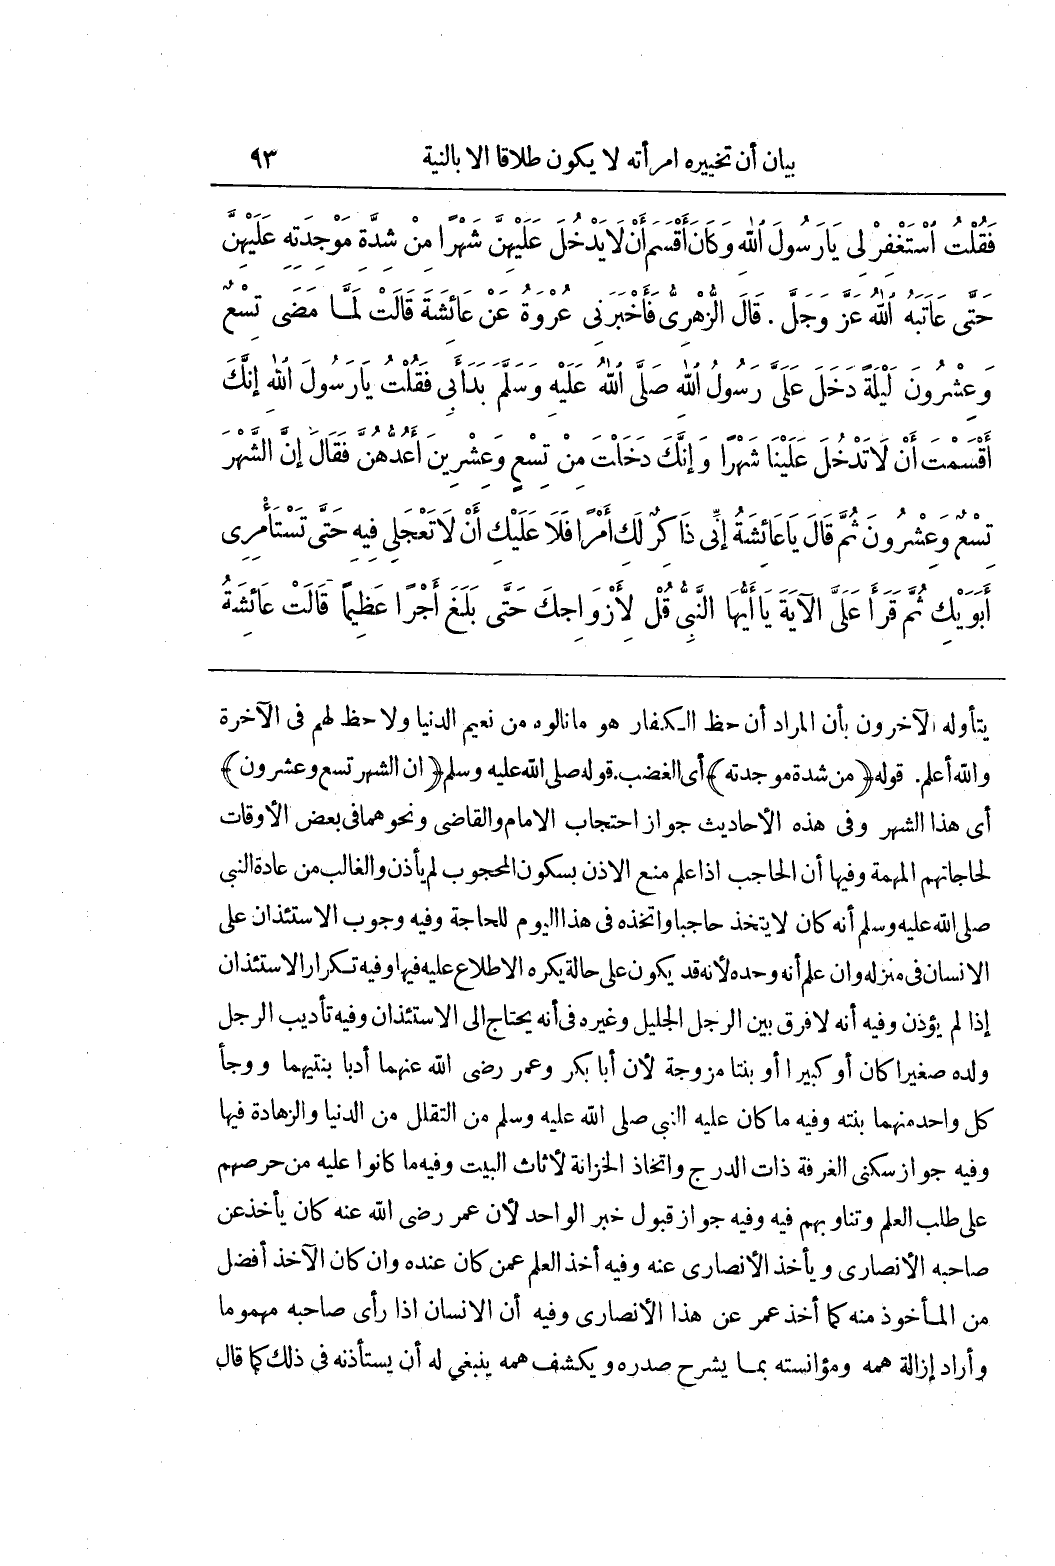 بيان أن تخييره امرأته لا يكون طلاقا الا بالنية ٩٣
فَقُلْتُ اسْتَغْفِرْ لِى يَارَسُولَ اللهِ وَكَانَ أَقْسَمَ أَنْ لَا يَدْخُلَ عَلَيْهِنَّ شَهْرًا مِنْ شِدَّةِ مَوْجِدَتِهِ عَلَيْهِنَّ
حَتَّى عَاتَبَهُ اللهُ عَزَّ وَجَلَّ . قَالَ الزُّهْرِىُّ فَأَخْبَرَنِى عُرْوَةُ عَنْ عَائِشَةَ قَالَتْ لَمَّا مَضَى تِسْعٌ
وَعِشْرُونَ لَيْلَةً دَخَلَ عَلَىَّ رَسُولُ اللهِ صَلَّى اللهُ عَلَيْهِ وَسَلَّمَ بَدَأَبِى فَقُلْتُ يَارَسُولَ اللهِ إِنَّكَ
أَقْسَمْتَ أَنْ لَا تَدْخُلَ عَلَيْنَا شَهْرًا وَإِنَّكَ دَخَلْتَ مِنْ تِسْعٍ وَعِشْرِينَ أَعُدُّهُنَّ فَقَالَ إِنَّ الشَّهْرَ
تِسْعٌ وَعِشْرُونَ ثُمَّ قَالَ يَاعَائِشَةُ إِنِّى ذَاكِرٌ لَكِ أَمْرًا فَلَا عَلَيْكِ أَنْ لَا تَعْجَلِى فِيهِ حَتَّى تَسْتَأْمِرِى
أَبَوَيْكِ ثُمَّ قَرَأَ عَلَىَّ الآيَةَ يَاأَيُّهَا النَّبِىُّ قُلْ لِأَزْوَاجِكَ حَتَّى بَلَغَ أَجْرًا عَظِيمًا قَالَتْ عَائِشَةُ
يتأوله الآخرون بأن المراد أن حظ الكفار هو مانالوه من نعيم الدنيا ولاحظ لهم فى الآخرة
والله أعلم. قوله ﴿من شدة موجدته﴾ أى الغضب. قوله صلى الله عليه وسلم ﴿ان الشهر تسع وعشرون﴾
أى هذا الشهر وفى هذه الأحاديث جواز احتجاب الامام والقاضى ونحوهما فى بعض الأوقات
لحاجاتهم المهمة وفيها أن الحاجب اذا علم منع الاذن بسكون المحجوب لم يأذن والغالب من عادة النبي
صلى الله عليه وسلم أنه كان لا يتخذ حاجبا واتخذه فى هذا اليوم للحاجة وفيه وجوب الاستئذان على
الانسان فى منزله وان علم أنه وحده لأنه قد يكون على حالة يكره الاطلاع عليه فيها وفيه تكرار الاستئذان
إذا لم يؤذن وفيه أنه لافرق بين الرجل الجليل وغيره فى أنه يحتاج الى الاستئذان وفيه تأديب الرجل
ولده صغيرا كان أو كبيرا أو بنتا مزوجة لأن أبا بكر وعمر رضى الله عنهما أدبا بنتيهما ووجأ
كل واحد منهما بنته وفيه ما كان عليه النبي صلى الله عليه وسلم من التقلل من الدنيا والزهادة فيها
وفيه جواز سكنى الغرفة ذات الدرج واتخاذ الخزانة لأثاث البيت وفيه ما كانوا عليه من حرصهم
على طلب العلم وتناوبهم فيه وفيه جواز قبول خبر الواحد لأن عمر رضى الله عنه كان يأخذ عن
صاحبه الأنصارى ويأخذ الأنصارى عنه وفيه أخذ العلم عمن كان عنده وان كان الآخذ أفضل
من المأخوذ منه كما أخذ عمر عن هذا الأنصارى وفيه أن الانسان اذا رأى صاحبه مهموما
وأراد إزالة همه ومؤانسته بما يشرح صدره ويكشف همه ينبغي له أن يستأذنه فى ذلك كما قال